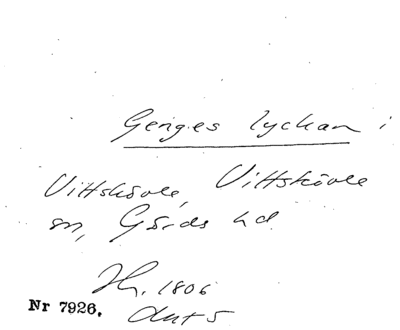 Geriges lyckan i
Vittskövle, Vittskövle
sn, Gärds hd
Hr. 1806
Nr 7926.